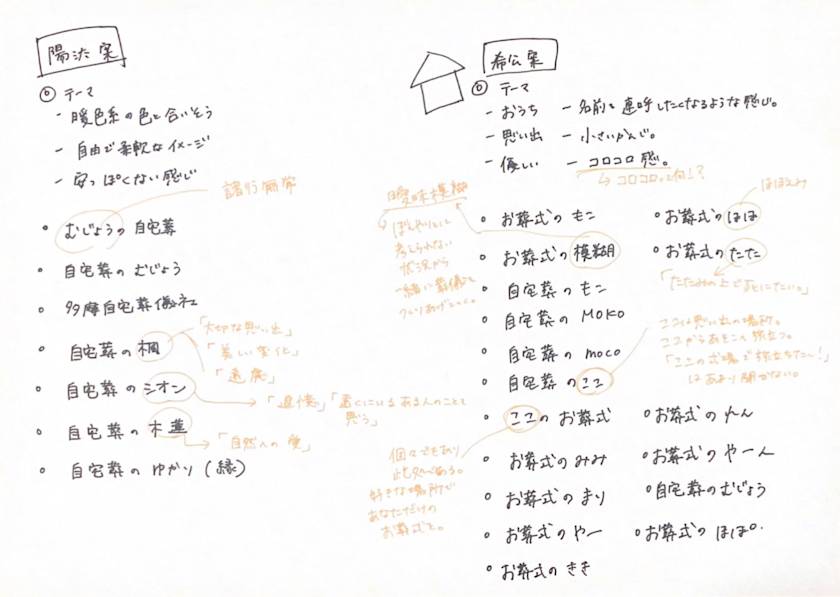 陽法案
◎ テーマ
- 暖色系の色と合いそう
- 自由で柔軟なイメージ
- 安っぽくない感じ
諸行無常
• むじょうの自宅葬
• 自宅葬のむじょう
• 多摩自宅葬儀社
• 自宅葬の楓
「大切な思い出」
「美しい変化」
「遠慮」
• 自宅葬のシオン
「追憶」「遠くにいるある人のことを
思う」
• 自宅葬の木蓮
「自然への愛」
• 自宅葬のゆかり(縁)
希公案
◎ テーマ
- おうち
- 思い出
- 優しい
- 名前を連呼したくなるような感じ。
- 小さいかんじ。
- コロコロ感。
↳ コロコロって何!?
曖昧模糊
ぼんやりして
考えられない
状況から
一緒に葬儀を
つくりあげていく。
• お葬式のもこ
• お葬式の模糊
• 自宅葬のもこ
• 自宅葬のMOKO
• 自宅葬のmoco
• 自宅葬のここ
ここは思い出の場所。
ここからあそこへ旅立つ。
「ここの式場で旅立ちた〜い!」
はあまり聞かない。
• ここのお葬式
個々でもあり
此処でもある。
好きな場所で
あなただけの
お葬式を。
• お葬式のみみ
• お葬式のまり
• お葬式のやー
• お葬式のきき
• お葬式のほほ
ほほえみ
• お葬式のたた
「たたみの上で死にたい。」
• お葬式のれん
• お葬式のやーん
• 自宅葬のむじょう
• お葬式のほぽ